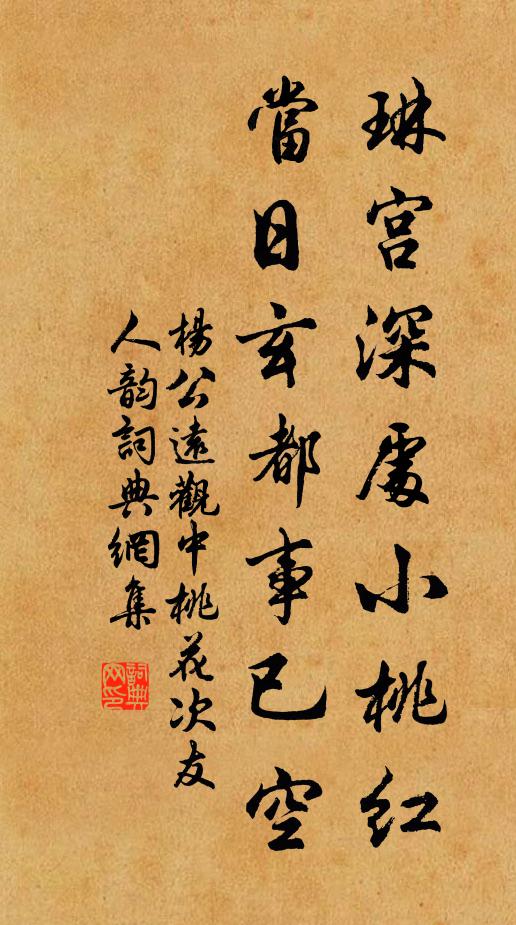 琳宫深處小桃红
當日玄都事已空
楊公遠觀中桃花次友
人韵詞典網集
詞典網印